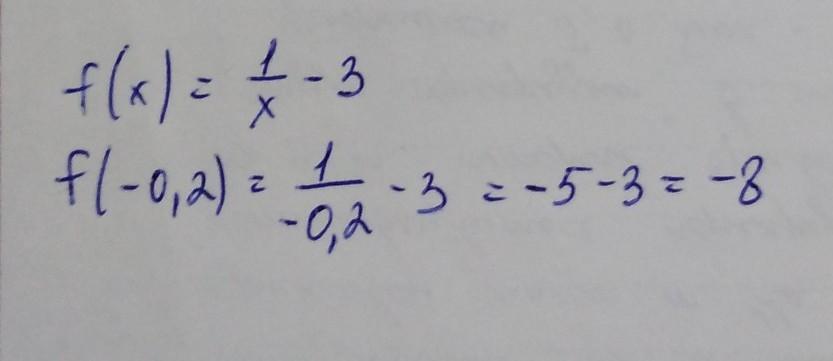 f(x) = 1/x - 3
f(-0,2) = 1/-0,2 - 3 = -5-3 = -8